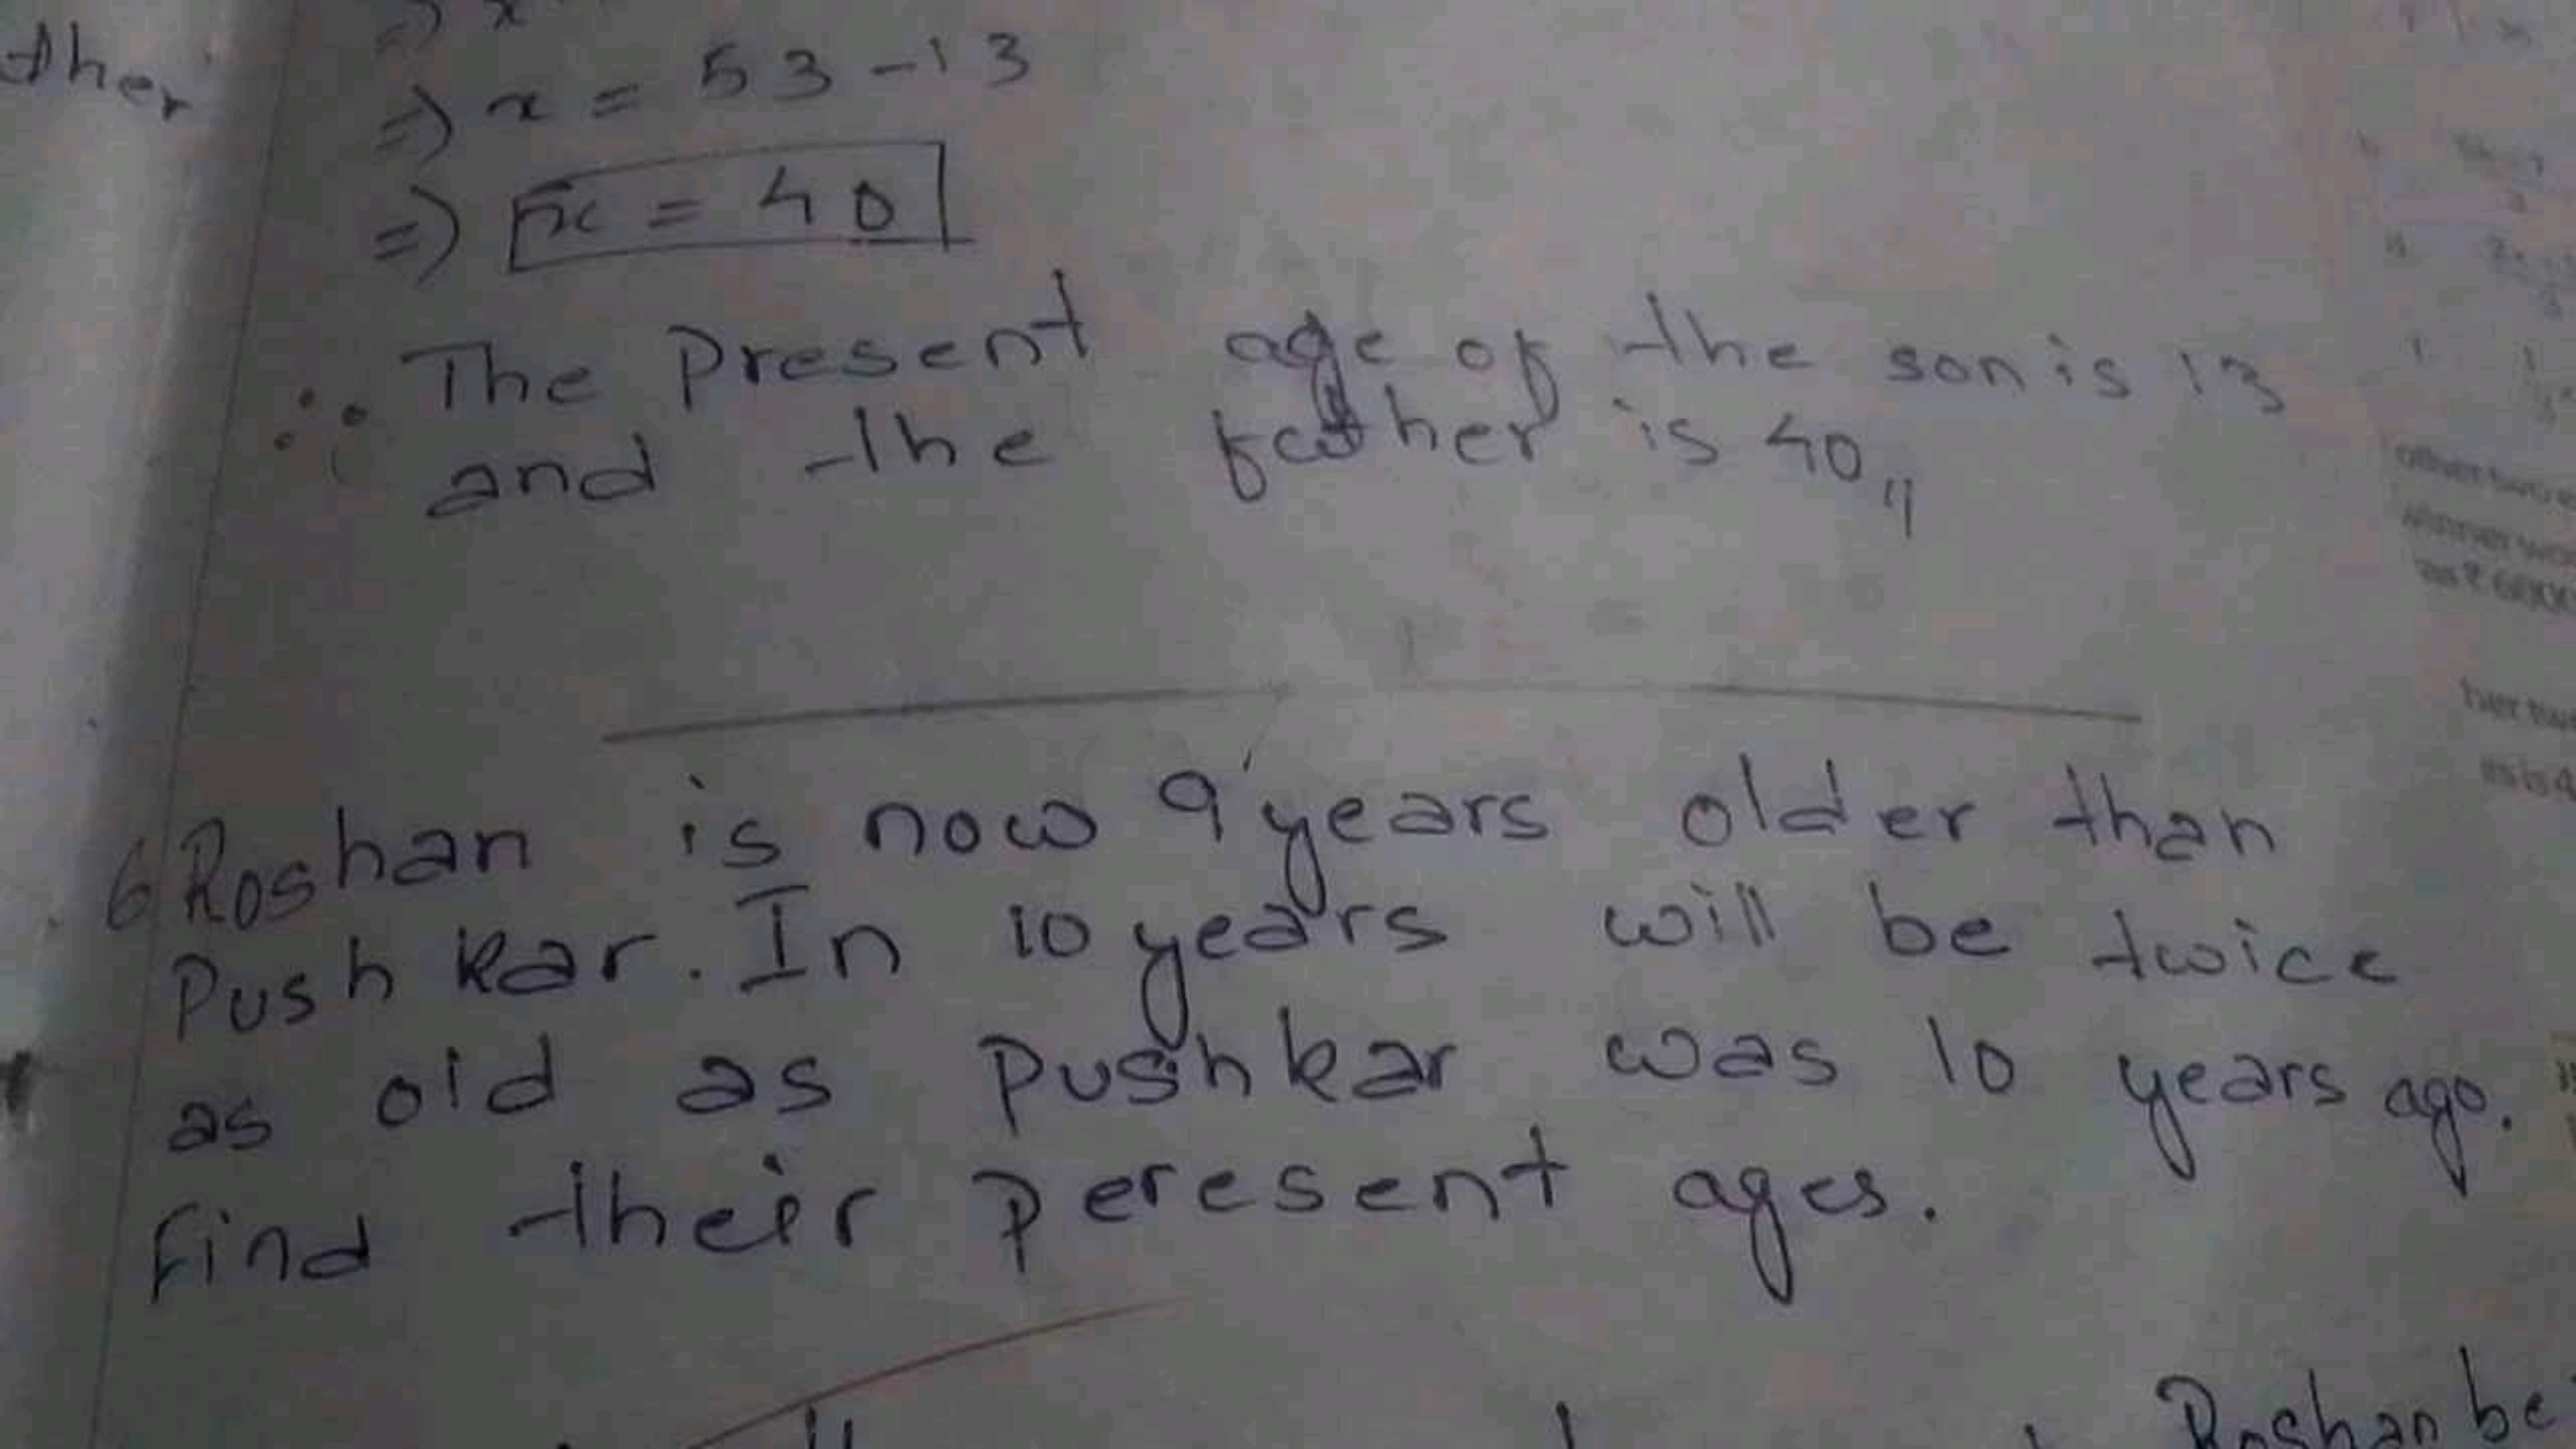 ther
=) x
=) x = 53-13
=) x = 40
∴ The Present age of the son is 13
and the father is 40,,
6 Roshan is now 9 years older than
Push kar. In 10 years will be twice
as old as Pushkar was 10 years ago.
Find their peresent ages.
Roshan be